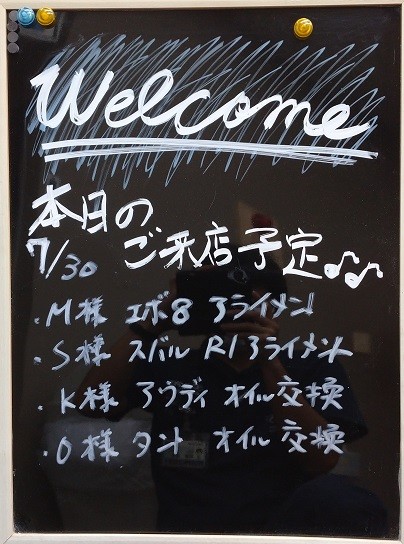 Welcome
本日の
7/30 ご来店予定♪♪
・M様 エボ8 アライメント
・S様 スバル R1アライメント
・K様 アウディ オイル交換
・O様 タント オイル交換